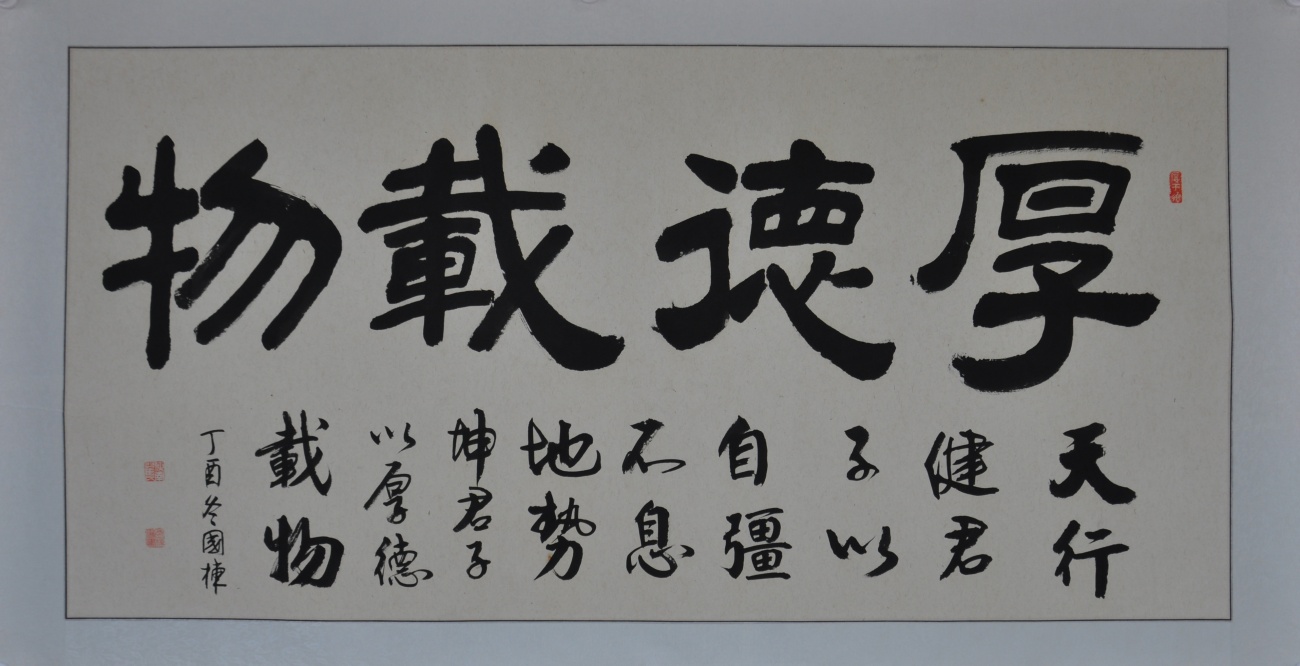 厚德載物
天行
健君
子以
自彊
不息
地勢
坤君子
以厚德
載物
丁酉冬國棟